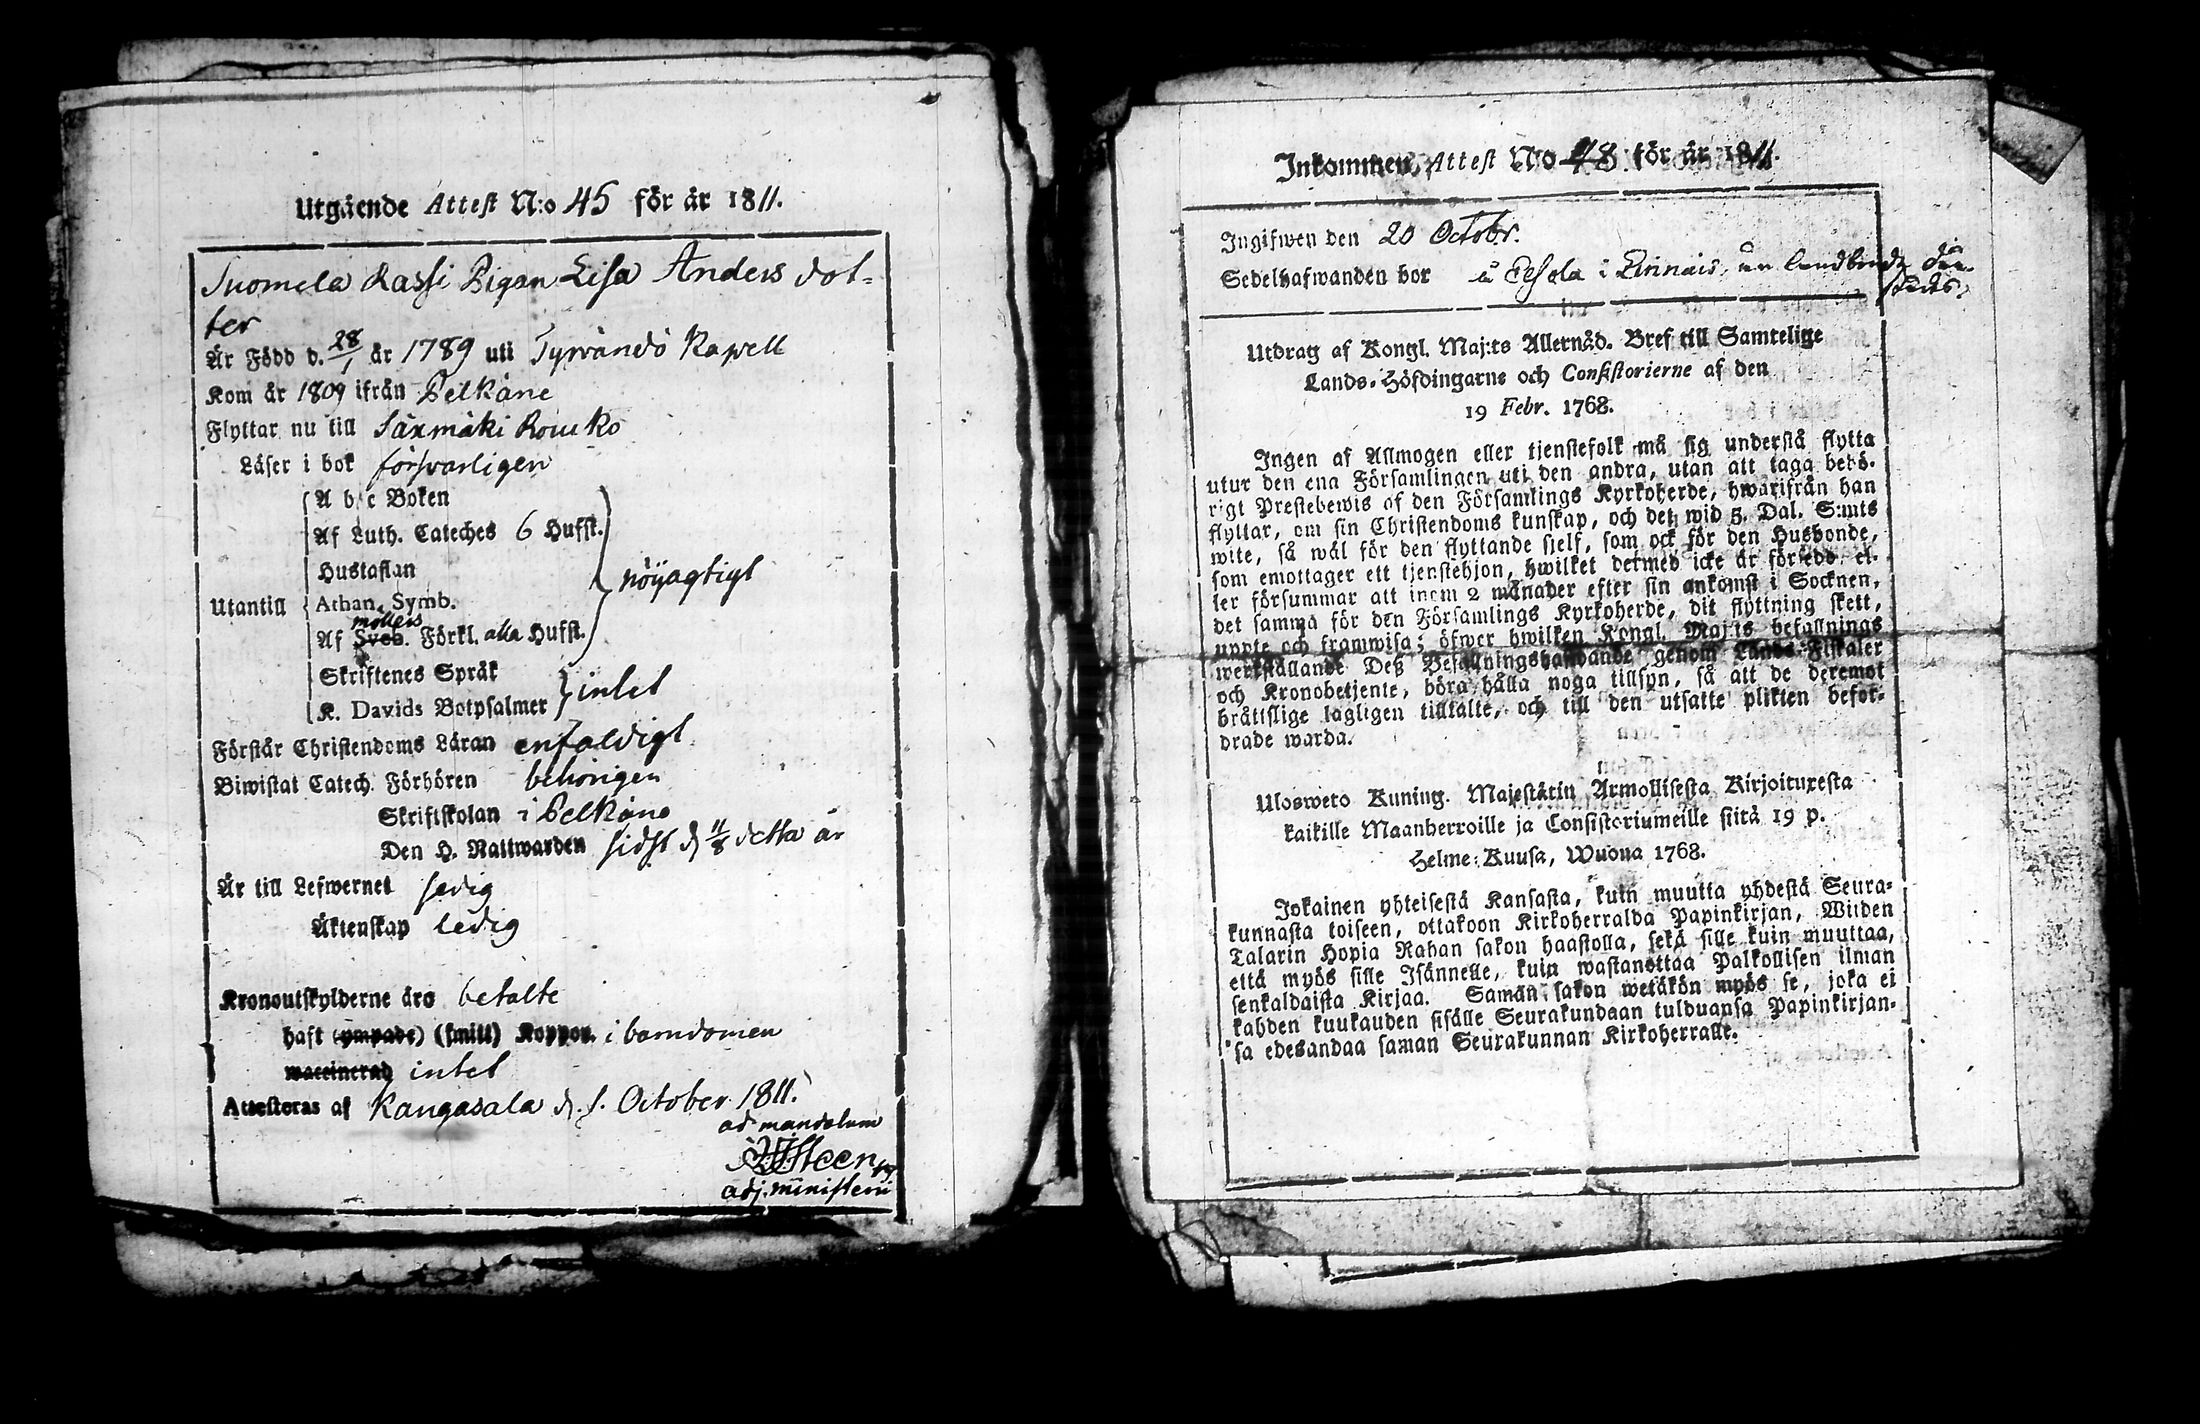 Utgående Attest N:o 45 för år 1811.
Suomela Rassi Pigan Lisa Anders dot-
ter
Är Född d. 28/1 år 1789 uti Tyrvändö Kapell
Kom år 1809 ifrån Pelkäne
Flyttar nu till Säxmäki Rouko
Läser i bok försvarligen
A b c Boken
Af Luth. Cateches 6 Hufst.
Hustaflan
Utantill Athan. Symb. nöijagtigt
möllers
Af Sveb. Förkl. alla Hufst.
Skriftenes Språk
K. Davids Botpsalmer intet
Förstår Christendoms Läran enfaldigt
Biwistat Catech. Förhören behörigen
Skriftskolan i Pelkäne
Den H. Nattwarden sidst d. 11/8 detta år
Är till Lefwernet sedig
Äktenskap ledig
Kronoutskylderne äro betalte
haft (ympade) (smitt) Koppor. i barndomen
waccinerad intet
Attesteras af Kangasala d. 1. October 1811.
ad mandatum
adj. ministerii
Inkommen Attest N:o 48 för år 1811.
Ingifwen den 20 Octobr.
Sedelhafwanden bor å
Utdrag af Kongl. Maj:ts Allernåd. Bref till Samtelige
Lands-Höfdingarne och Consistorierne af den
19 Febr. 1768.
Ingen af Allmogen eller tjenstefolk må sig understå flytta
utur den ena Församlingen uti den andra, utan att taga behö-
rigt Prestebewis af den Församlings Kyrkoherde, hwarifrån han
flyttar, om sin Christendoms kunskap, och det wid 5. Dal. S:mts
wite, så wäl för den flyttande sjelf, som ock för den Husbonde,
som emottager ett tjenstehjon, hwilket dermed icke är försedd, el-
ler försummar att inom 2 månader efter sin ankomst i Socknen,
det samma för den Församlings Kyrkoherde, dit flyttning skett,
uppte och framwisa; öfwer hwilken Kongl. Maj:ts befallnings
werkställande Deß Befallningshafwande genom Lands-Fiskaler
och Kronobetjente, böra hålla noga tillsyn, så att de deremot
bråttslige lagligen tilltalte, och till den utsatte plikten befor-
drade warda.
Ulosweto Kuning. Majestätin Armollisesta Kirjoituxesta
kaikille Maanherroille ja Consistoriumeille siitä 19 p.
Helme-Kuusa, Wuona 1768.
Jokainen yhteisestä Kansasta, kuin muutta yhdestä Seura-
kunnasta toiseen, ottakoon Kirkoherralda Papinkirjan, Wiiden
Talarin Hopia Rahan sakon haastolla, sekä sille kuin muuttaa,
että myös sille Isännelle, kuin wastanottaa Palkollisen ilman
senkaldaista Kirjaa. Samän sakon wetäkön myös se, joka ei
kahden kuukauden sisälle Seurakundaan tulduansa Papinkirjan-
sa edesandaa saman Seurakunnan Kirkoherralle.